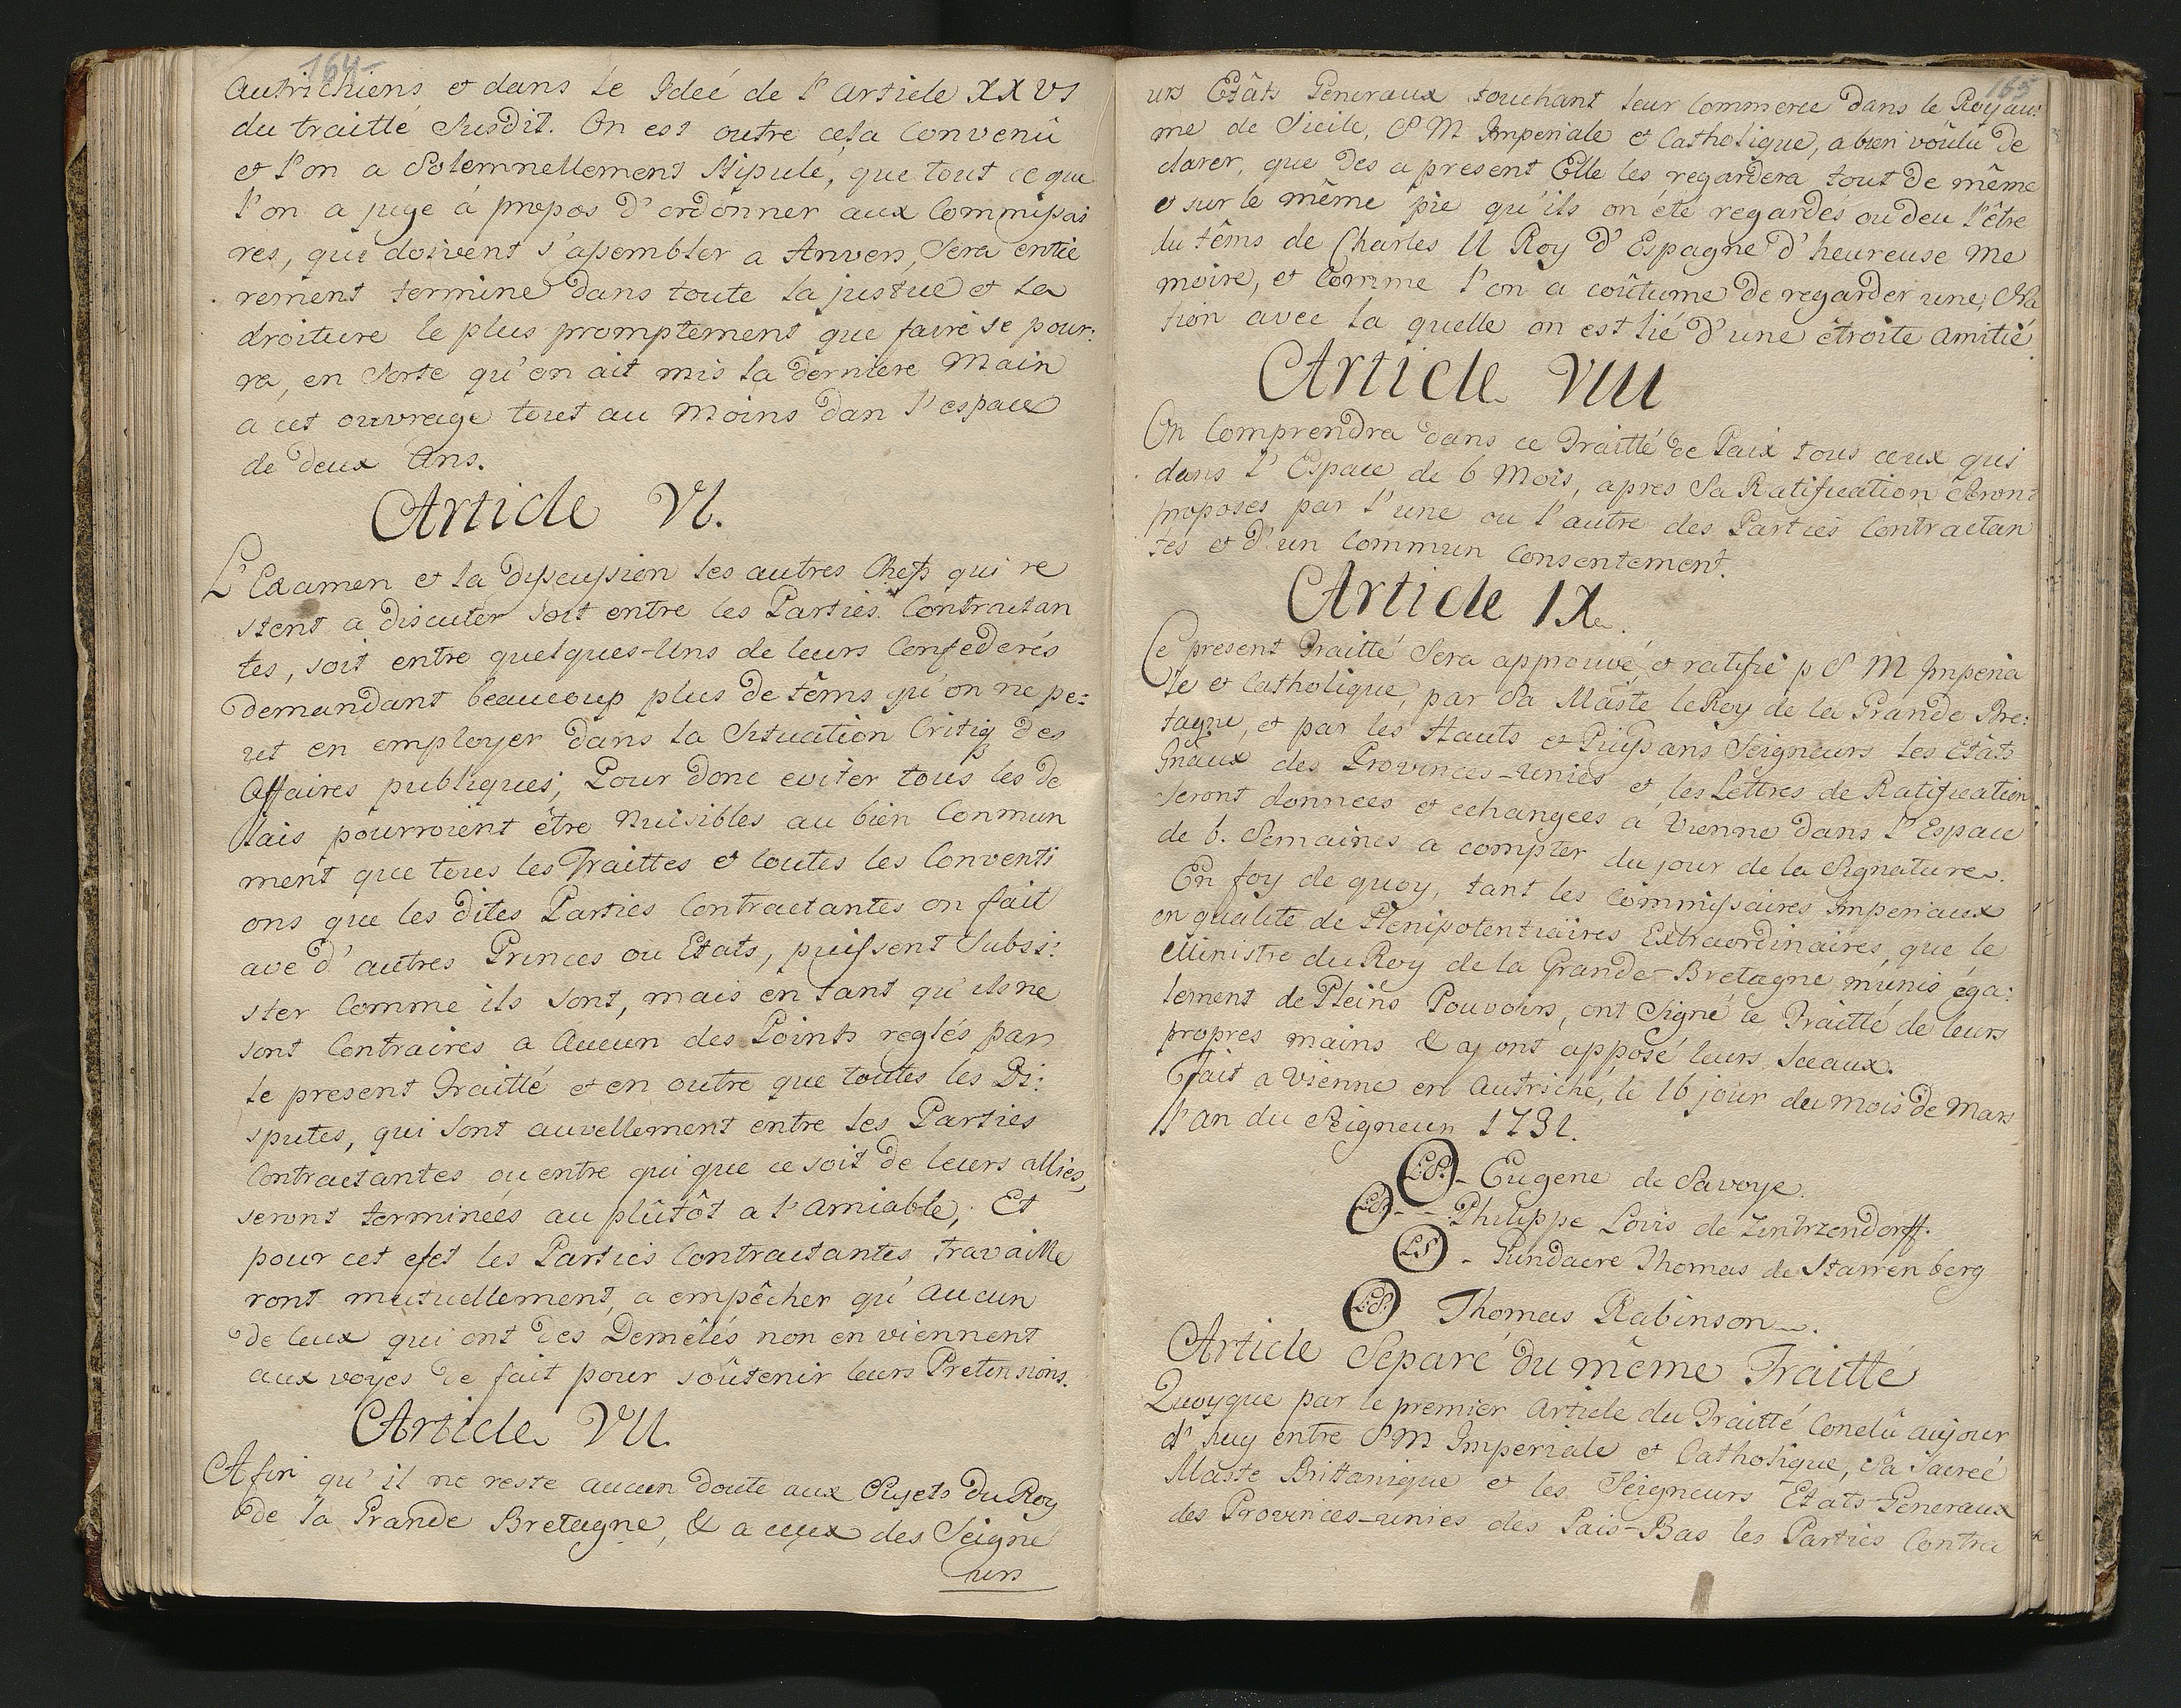 164
Autrichiens et dans le Ideé de l'article XXVI
du traitté Susdit. On est outre cela Convenû
et l'on a Solemnellement Stipulé, que tout ce que
l'on a jugé á propos d'ordonner aux Commissai
res, qui doivent s'assembler a Anvers, Sera entie
rement terminé dans toute la justice et la
droiture le plus promptement que faire se pour:
ra, en Sorte qu'on ait mis la derniere Main
a cet ouvrage tout au Moins dan l'espace
de deux Ans.
Article VI.
L'Examen et la discussion les autres Chefs qui re
stent a discuter soit entre les Parties Contractan
tes, soit entre quelques-Uns de leurs Confederés
demandant beaucoup plus de têms qu'on ne pe:
ut en employer dans la Situation Critiq des
Affaires publiques; Pour donc eviter tous les de
lais pourroient être Nuisibles au bien Conmun
ment que tous les Traittes et toutes les Conventi
ons que les dites Parties Contractantes on fait
ave d'autres Princes ou Etats, puissent Subsi:
ster Comme ils sont, mais en tant qu'ils ne
sont Contraires a Aucun des Points reglés par
le present Traitté et en outre que toutes les Di:
sputes, qui sont auvellement entre les Parties
Contractantes ou entre qui que ce soit de leurs alliés,
seront terminées au plûtôt a l'amiable; Et
pour cet efet les Parties Contractantes travaille
ront mutuellement, a empêcher qu'aucun
de ceux qui ont des Demêlés non en viennent
aux voyes de fait pour soûtenir leurs Pretensions.
Article VII.
Afin qu'il ne reste aucun doute aux Sujets du Roy
de la Grande Bretagne, & a ceux des Seigne
urs
165
urs Etâts Generaux touchant leur Commerce dans le Royau:
me de Sicile, S M Imperiale et Catholique, a bien voûlu de
clarer, que des a present Elle les regardera tout de même
et sur le même pie qu'ils on été regardés ou deu l'être
du têms de Charles II Roy d'Espagne d'heureuse me
moire, et Comme l'on a coûtume de regarder une Na
tion avec la quelle on est lié d'une étroite amitié
Article VIII
On Comprendra dans ce Traitté de Paix tous ceux qui
dans l'Espace de 6 Mois, apres Sa Ratification Seront
proposés par l'une ou l'autre des Parties Contractan
tes et d'un Commun Consentement.
Article IX.
Ce present Traitté Sera approuvé et ratifié p S M Imperia
le et Catholique, par Sa Máste le Roy de la Grande Bre:
tagne, et par les Hauts et Puissans Seigneurs les Etâts
Gnâux des Provinces-unies et les Lettres de Ratification
seront données et echangées a Vienne dans l'Espace
de 6. Semaines a compter du jour de la Signature.
En foy de quoy, tant les Commissaires Imperiaux
en qualité de Plenipotentiäires Extraordinaires, que le
Ministre du Roy de la Grande-Bretagne munis éga:
lement de Pleins Pouvoirs, ont Signé le Traitté de leurs
propres mains & ay ont apposé leurs sceaux.
Fait a Vienne en Autriche, le 16 jour du mois de Mars
l'an du Seigneur 1731.
L.S. - Eugene de Savoye.
L.S. - - Philippe Lovis de Zintrzendorff.
L.S - Gundacre Thomas de Starrenberg
L.S. Thomas Rabinson.
Article Separé du même Traitté
Quoyque par le premier Article du Traitté Conclû aujour
d'huy entre S M Imperiale et Catholique, Sa Sacreé
Máste Brittanique et les Seigneurs Etats-Generaux
des Provinces-unies des Païs-Bas les Parties Contra